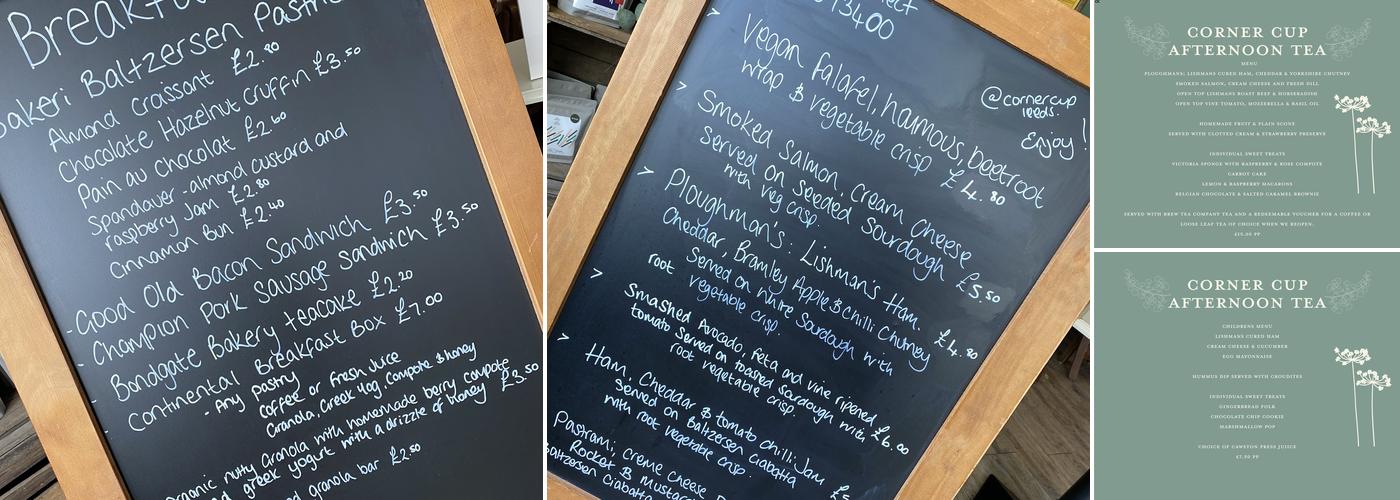 Bakeri Baltzersen
Almond Croissant £2.80
Chocolate Hazelnut Cruffin £3.50
Pain au Chocolat £2.60
Spandauer - almond custard and
raspberry Jam £2.80
Cinnamon Bun £2.40
- Good Old Bacon Sandwich £3.50
- Champion Pork Sausage Sandwich £3.50
- Bondgate Bakery teacake £2.20
- Continental Breakfast Box £7.00
- Any pastry
Coffee or Fresh Juice
Granola, Greek Yog, Compote & honey
nutty Granola with homemade berry compote
greek yogurt with a drizzle of honey £3.50
granola bar £2.50
> Vegan Falafel, houmous, beetroot
wrap & vegetable crisp £4.80
@cornercup
leeds.
Enjoy!
> Smoked Salmon, Cream Cheese
Served on Seeded Sourdough £5.50
with veg crisp.
> Ploughman's: Lishman's Ham.
Cheddar, Bramley Apple & chilli Chutney
Served on white Sourdough with £4.80
root vegetable crisp.
> Smashed Avocado, Feta and vine ripened
tomato Served on toasted Sourdough with £6.00
root vegetable crisp.
> Ham, Cheddar, & tomato chilli Jam
Served on Baltzersen Ciabatta
with root vegetable crisp
Pastrami, creme cheese
Rocket & Mustard
Ciabatta
CORNER CUP
AFTERNOON TEA
MENU
PLOUGHMANS; LISHMANS CURED HAM, CHEDDAR & YORKSHIRE CHUTNEY
SMOKED SALMON, CREAM CHEESE AND FRESH DILL
OPEN TOP LISHMANS ROAST BEEF & HORSERADISH
OPEN TOP VINE TOMATO, MOZZERELLA & BASIL OIL
HOMEMADE FRUIT & PLAIN SCONE
SERVED WITH CLOTTED CREAM & STRAWBERRY PRESERVE
INDIVIDUAL SWEET TREATS
VICTORIA SPONGE WITH RASPBERRY & ROSE COMPOTE
CARROT CAKE
LEMON & RASPBERRY MACARONS
BELGIAN CHOCOLATE & SALTED CARAMEL BROWNIE
SERVED WITH BREW TEA COMPANY TEA AND A REDEEMABLE VOUCHER FOR A COFFEE OR
LOOSE LEAF TEA OF CHOICE WHEN WE REOPEN.
CORNER CUP
AFTERNOON TEA
CHILDRENS MENU
LISHMANS CURED HAM
CREAM CHEESE & CUCUMBER
EGG MAYONNAISE
HUMMUS DIP SERVED WITH CRUDITES
INDIVIDUAL SWEET TREATS
GINGERBREAD FOLK
CHOCOLATE CHIP COOKIE
MARSHMALLOW POP
CHOICE OF CAWSTON PRESS JUIICE
£7.50 PP